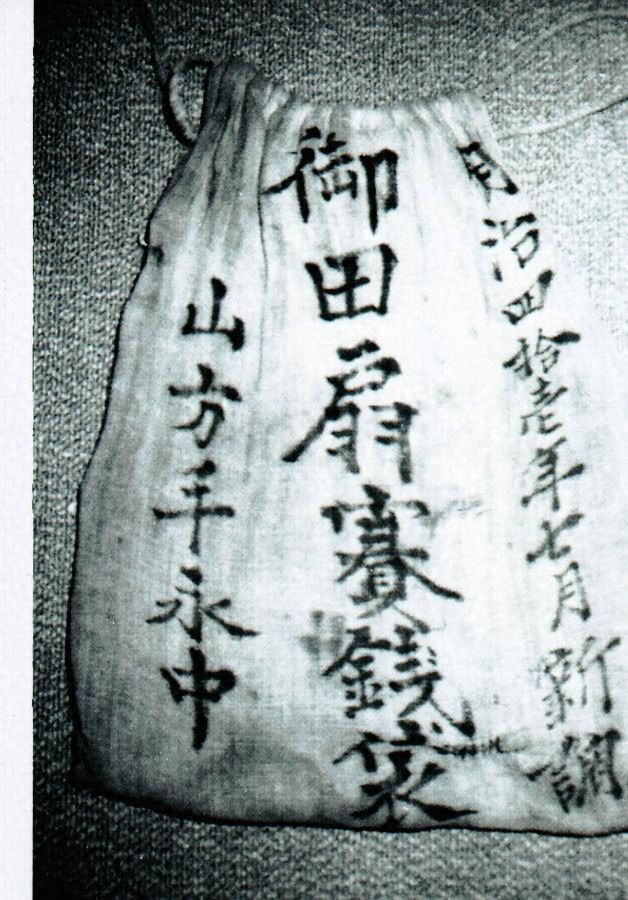 明治四拾壱年七月新調
御田扇賽銭袋
山方手永中